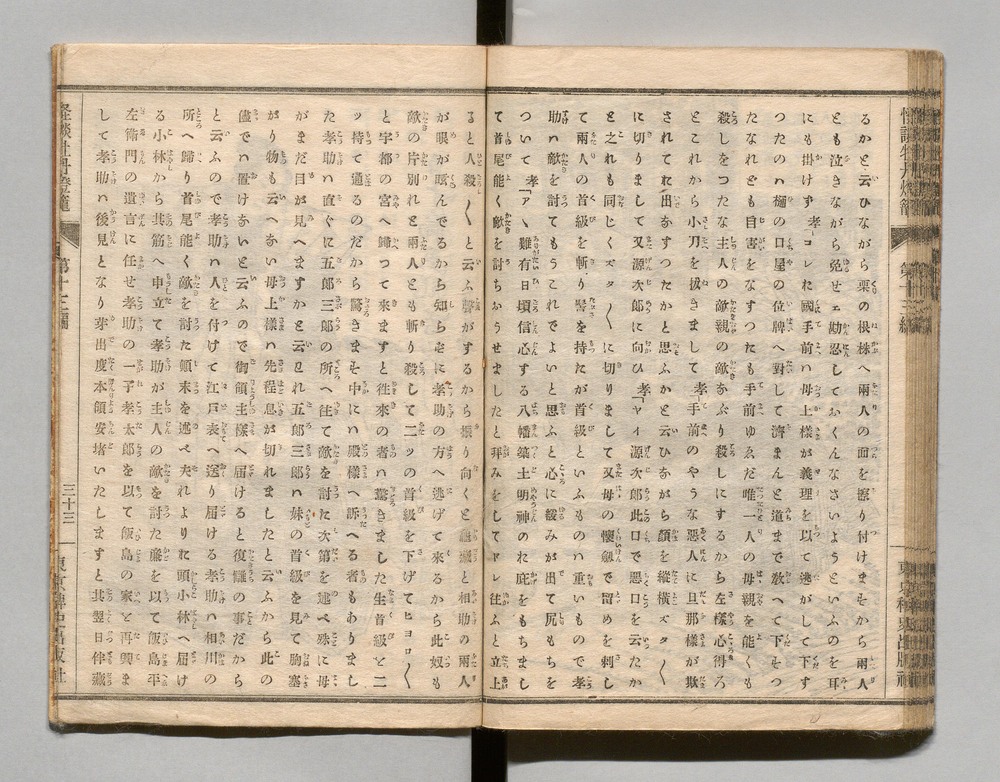 るかと云ひながら栗の根株へ兩人の面を擦り付けますから兩人
とも泣きながら免せエ勘忍しておくんなさいようといふのを耳
にも掛けず孝「コレお國手前ハ母上様が義理を以て逃がして下す
つたのハ樋の口屋の位牌へ對して濟まんと道まで敎へて下すつ
たなれども自害をなすつたも手前ゆゑだ唯一人の母親を能くも
殺しをつたな主人の敵親の敵なぶり殺しにするから左様心得ろ
とこれから小刀を抜きまして孝「手前のやうな惡人に旦那様が欺
されてお出なすつたかと思ふかと云ひながら顔を縦横ズタ〱
に切りまして又源次郎に向ひ孝「ヤイ源次郎此口で惡口を云たか
と之れも同じくズタ〱に切りまして又母の懷劔で留めを刺し
て兩人の首級を斬り髻を持たが首級といふものハ重いもので孝
助ハ敵を討てもうこれでよいと思ふと心に緩みが出て尻もちを
ついて孝「アヽ難有日頃信心する八幡築土明神のお庇をもちまし
て首尾能く敵を討ちおうせましたと拜みをしてドレ往ふと立上
ると人殺〱と云ふ聲がするから振り向くと龜藏と相助の兩人
が眼が眩んでるから知らずに孝助の方へ逃げて來るから此奴も
敵の片別れと兩人とも斬り殺して二ツの首級を下げてヒヨロ〱
と宇都の宮へ歸つて來ますと往來の者ハ驚きました生首級を二
ッ持て通るのだから驚きます中にハ殿様へ訴へる者もありまし
た孝助ハ直ぐに五郎三郎の所へ往て敵を討た次第を述べ殊に母
がまだ目が見へますかと云ハれ五郎三郎ハ妹の首級を見て胸塞
がり物も云へない母上様ハ先程息が切れましたと云ふから此の
儘でハ置けないと云ふので御領主様へ届けると復讐の事だから
と云ふので孝助ハ人を付けて江戸表へ送り届ける孝助ハ相川の
所へ歸り首尾能く敵を討た顚末を述べ夫れよりお頭小林へ届け
る小林から其筋へ申立て孝助が主人の敵を討た廉を以て飯島平
左衛門の遺言に任せ孝助の一子孝太郎を以て飯島の家を再興ま
して孝助ハ後見となり芽出度本領安堵いたしますと其翌日伴藏
怪談牡丹燈籠
第十三編
三十三
東京稗史出版社